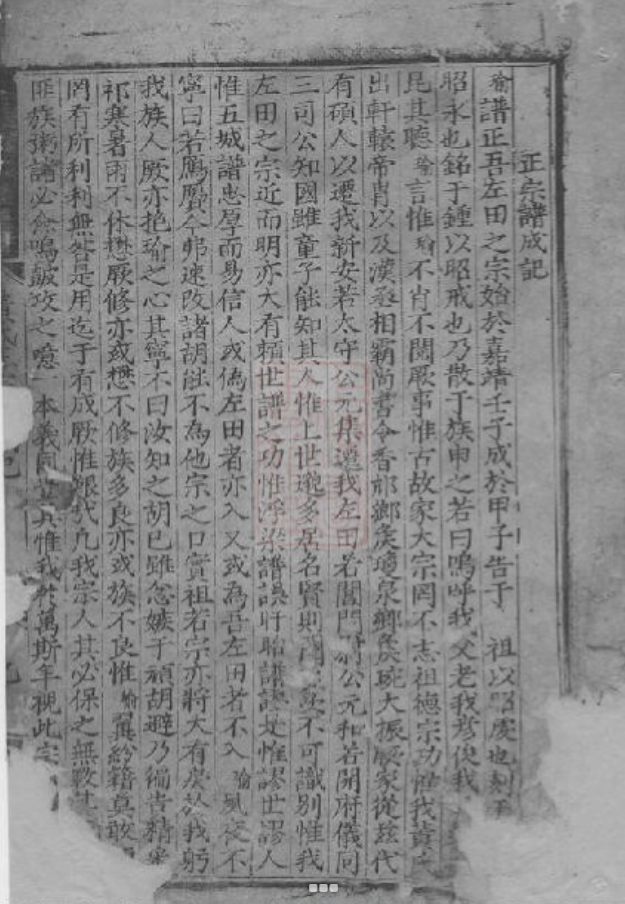 正宗譜成記
瑜譜正吾左田之宗始於嘉靖壬子成於甲子告于 祖以昭虔也刻于
昭永也銘于鍾以昭戒也乃散于族申之若曰嗚呼我父老我彥俊我
昆其聽瑜言惟瑜不肖不閱厥事惟古故家大宗罔不志祖德宗功惟我黃
出軒轅帝胄以及漢丞相霸尚書令香邟鄉矦瓊泉鄉矦琬大振厥家從茲代
有碩人以遷我新安若太守公元集遷我左田若閶門尉公元和若開府儀同
三司公知國雖童子能知其人惟上世邈多居名賢則不可識別惟我
左田之宗近而明亦大有賴世譜之功惟浮梁譜誤盱眙譜惟謬世謬人
惟五城譜忠厚而易信人或偽左田者亦入又或為吾左田者不入瑜夙夜不
寧曰若鴈臀今弗速改諸胡能不為他宗之口實祖若宗亦將大有戾於我躬
我族人厥亦抱瑜之心其寧不曰汝知之胡已雖怨嫉于頑胡避乃徧告精
祁寒暑雨不休懋厥修亦或懋不修族多良亦或族不良惟瑜冀紛籍莫敢
罔有所利利無咎是用迄于有成厥惟艱哉凡我宗人其必保之無斁
匪族粥譜必僉鳴鼓攻之噫一本義同惟我於萬斯年視此宗